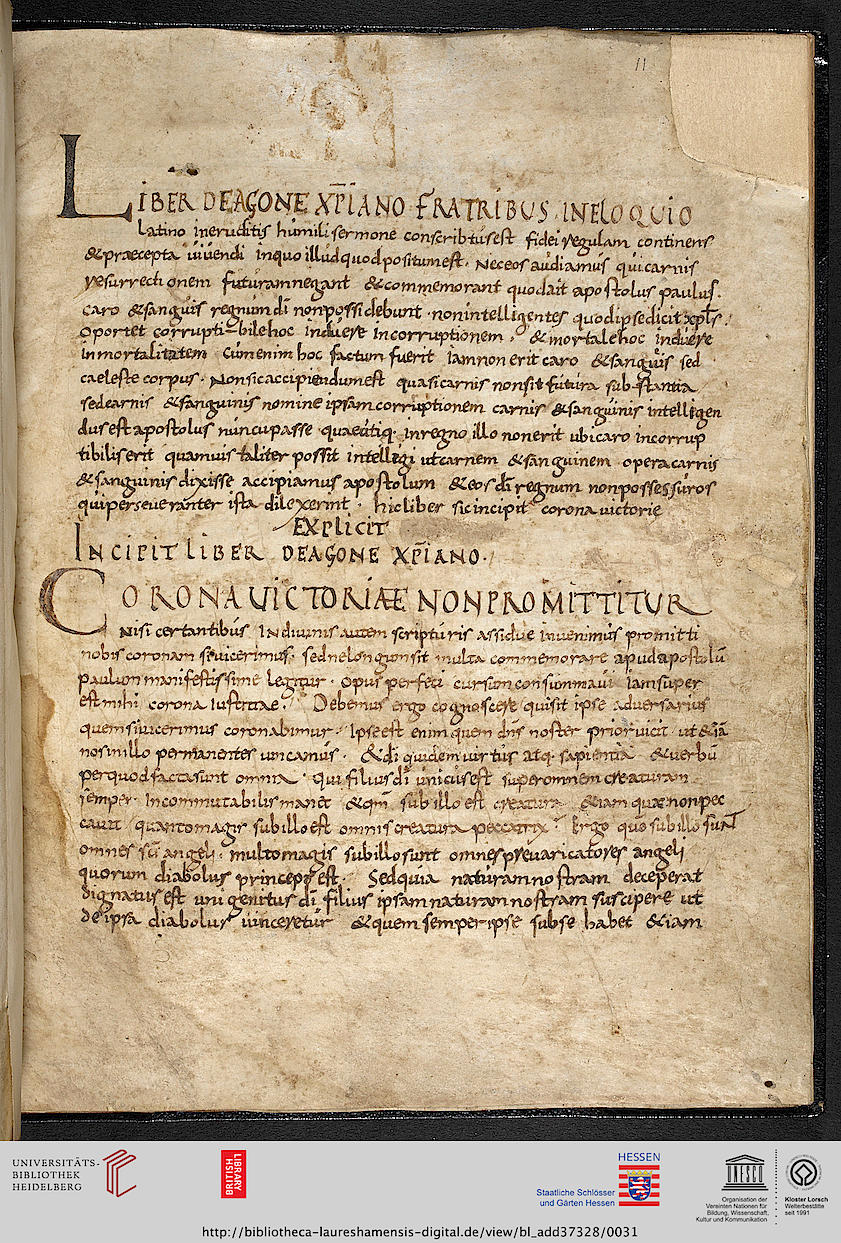 11
LIBER DEAGONE XP̅IANO FRATRIBUS INELOQUIO
Latino ineruditis humili sermone conscribtusest fidei regulam continens
&praecepta uiuendi inquo illud quod positumest. Neceos audiamus qui carnis
resurrectionem futuram negant &commemorant quodait apostolus paulus.
caro &sanguis regnum dı̅ nonpossidebunt · nonintelligentes quodipse dicit xp̅ls.
Oportet corruptibile hoc induere Incorruptionem, &mortale hoc induere
Inmortalitatem cumenim hoc factum fuerit Iamnon erit caro &sanguis sed
caeleste corpus. Nonsicaccipiendumest quasi carnis nonsit futura substantia
sedcarnis &sanguinis nomine ipsam corruptionem carnis &sanguinis intelligen
dusest apostolus nuncupasse · quaeutiq· inregno illo nonerit ubi caro incorrup
tibilis erit quamuis taliter possit intelligi ut carnem &sanguinem opera carnis
&sanguinis dixisse accipiamus apostolum &eos dı̅ regnum nonpossessuros
qui perseueranter ista dilexerint · hic liber sic incipit corona uictorie
EXPLICIT
INCIPIT LIBER DEAGONE XP̅IANO.
CORONA UICTORIAE NONPROMITTITUR
Nisi certantibus Indiuinis autem scripturis assidue inuenimus promitti
nobis coronam siuicerimus. sed nelongum sit multa commemorare apud apostolu̅
paulum manifestissime legitur. Opus perfeci cursum consummaui Iam super
est mihi corona Iustitiae. Debemus ergo cognoscere quisit ipse aduersarius
quem siuicerimus coronabimur. Ipse est enim quem dn̅s noster prior uicit · ut &ia̅
nos inillo permanentes uincamus. &di̅ quidem uirtus atq· sapientia &uerbu̅
perquod facta sunt omnia. Qui filius dı̅ unicus est super omnem creaturam
semper Incommutabilis manet &qm̅ sub illo est creatura &iam quae non pec
cauit quanto magis sub illo est omnis creatura peccatrix. Ergo quo sub illo sunt
omnes sc̅i angeli. multo magis sub illo sunt omnes preuaricatores angeli
quorum diabolus princeps est. Sed quia naturam nostram deceperat
dignatus est unigenitus dı̅ filius ipsam naturam nostram suscipere ut
de ipsa diabolus uinceretur &quem semper ipse sub se habet &iam
UNIVERSITÄTS-
BIBLIOTHEK
HEIDELBERG
BRITISH
LIBRARY
HESSEN
Staatliche Schlösser
und Gärten Hessen
UNESCO
Organisation der
Vereinten Nationen für
Bildung, Wissenschaft,
Kultur und Kommunikation
Kloster Lorsch
Welterbestätte
seit 1991
http://bibliotheca-laureshamensis-digital.de/view/bl_add37328/0031